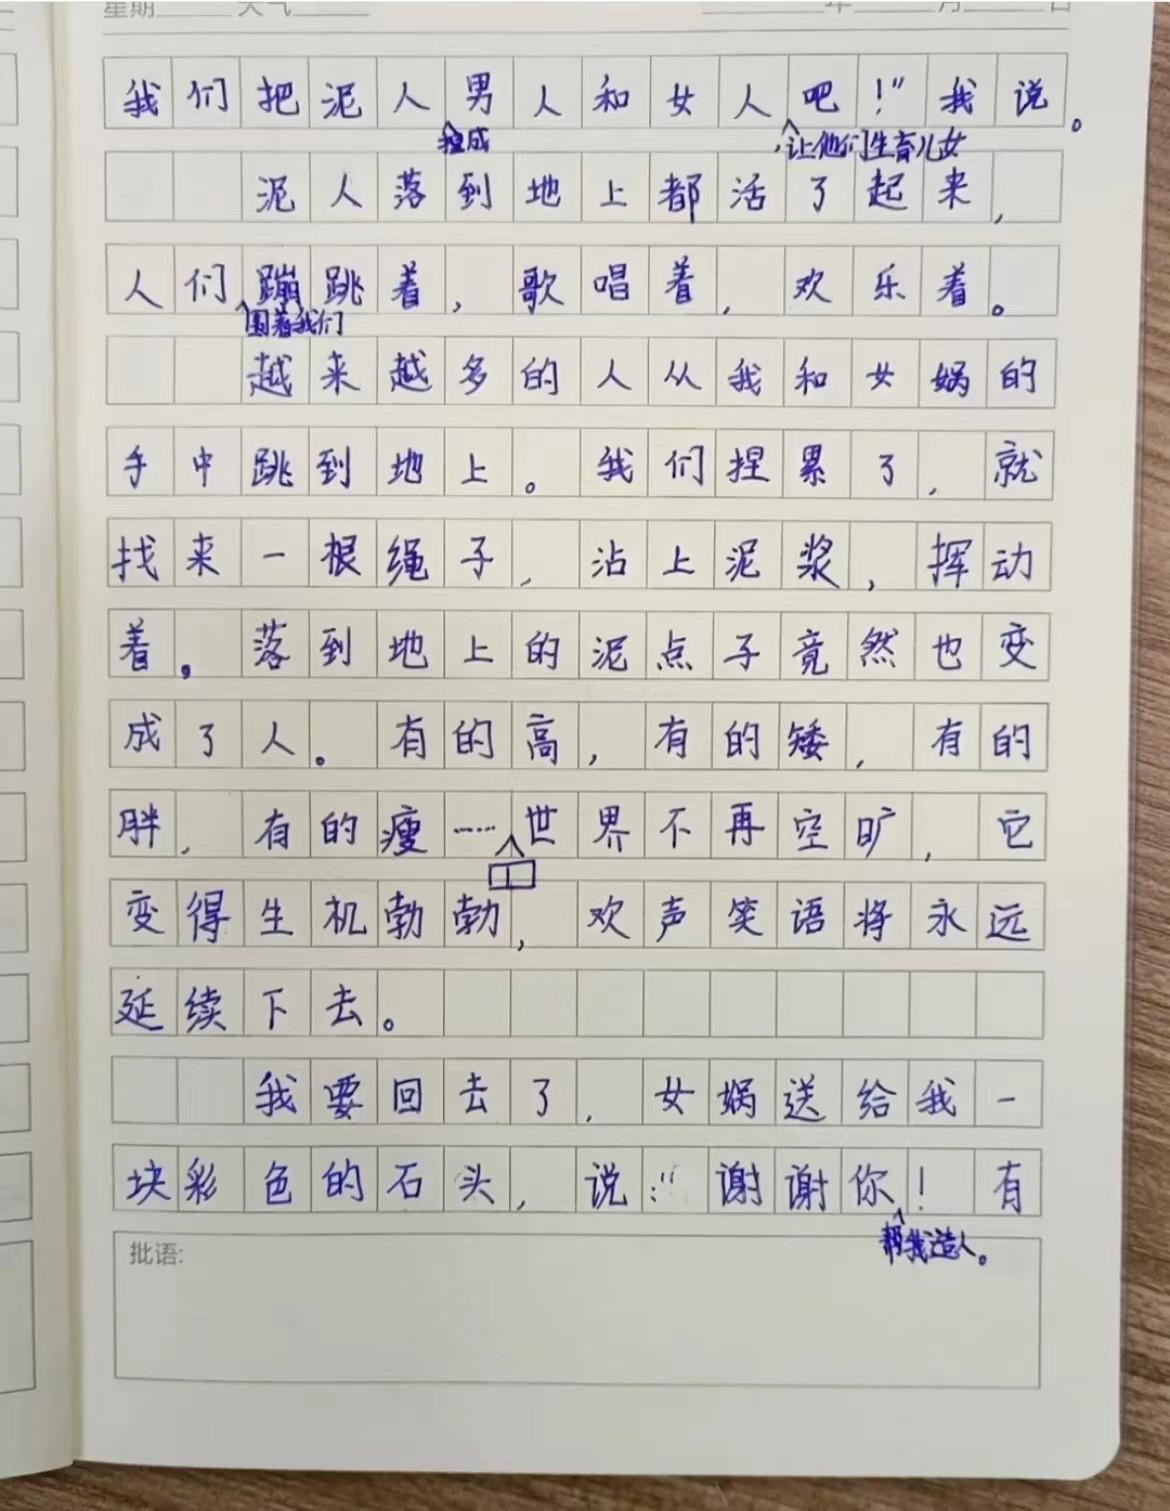 星期 天气 年 月 日
我们把泥人男人和女人吧！”我说。
捏成
，让他们生育儿女
泥人落到地上都活了起来，
人们蹦跳着，歌唱着，欢乐着。
围着我们
越来越多的人从我和女娲的
手中跳到地上。我们捏累了，就
找来一根绳子，沾上泥浆，挥动
着。落到地上的泥点子竟然也变
成了人。有的高，有的矮，有的
胖，有的瘦……世界不再空旷，它
变得生机勃勃，欢声笑语将永远
延续下去。
我要回去了，女娲送给我一
块彩色的石头，说：“谢谢你！有
帮我造人。
批语: